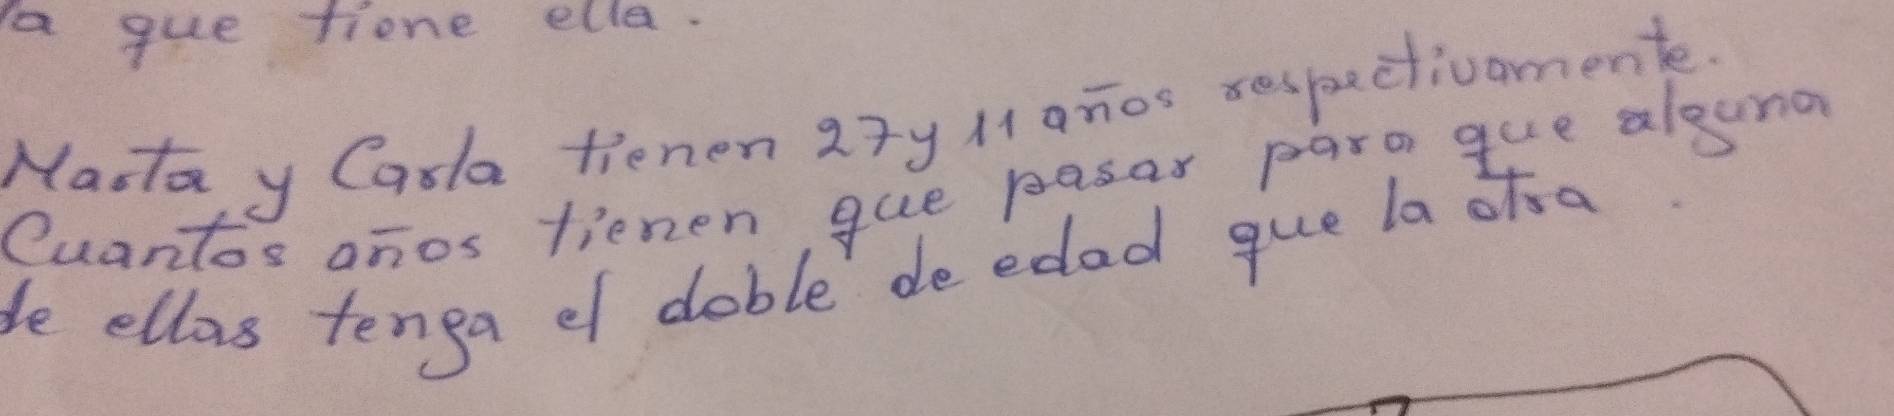 a que tiene ella.
Marta y Carla tienen 27 y 11 años respectivamente.
Cuantos años tienen que pasar para que alguna
de ellas tenga el doble de edad que la otra.